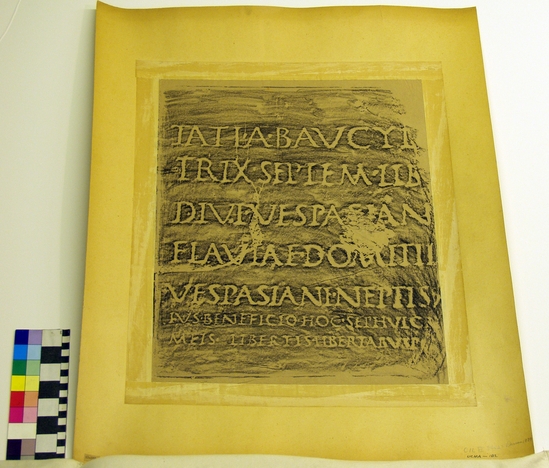 TATIA·BAVCYL
TRIX·SEPTEM·LIB
DIVI·VESPASIAN
FLAVIAE·DOMITIL
VESPASIANI·NEPTIS
IVS·BENEFICIO·HOC·SEPHVLC
MEIS·LIBERTIS·LIBERTABVS